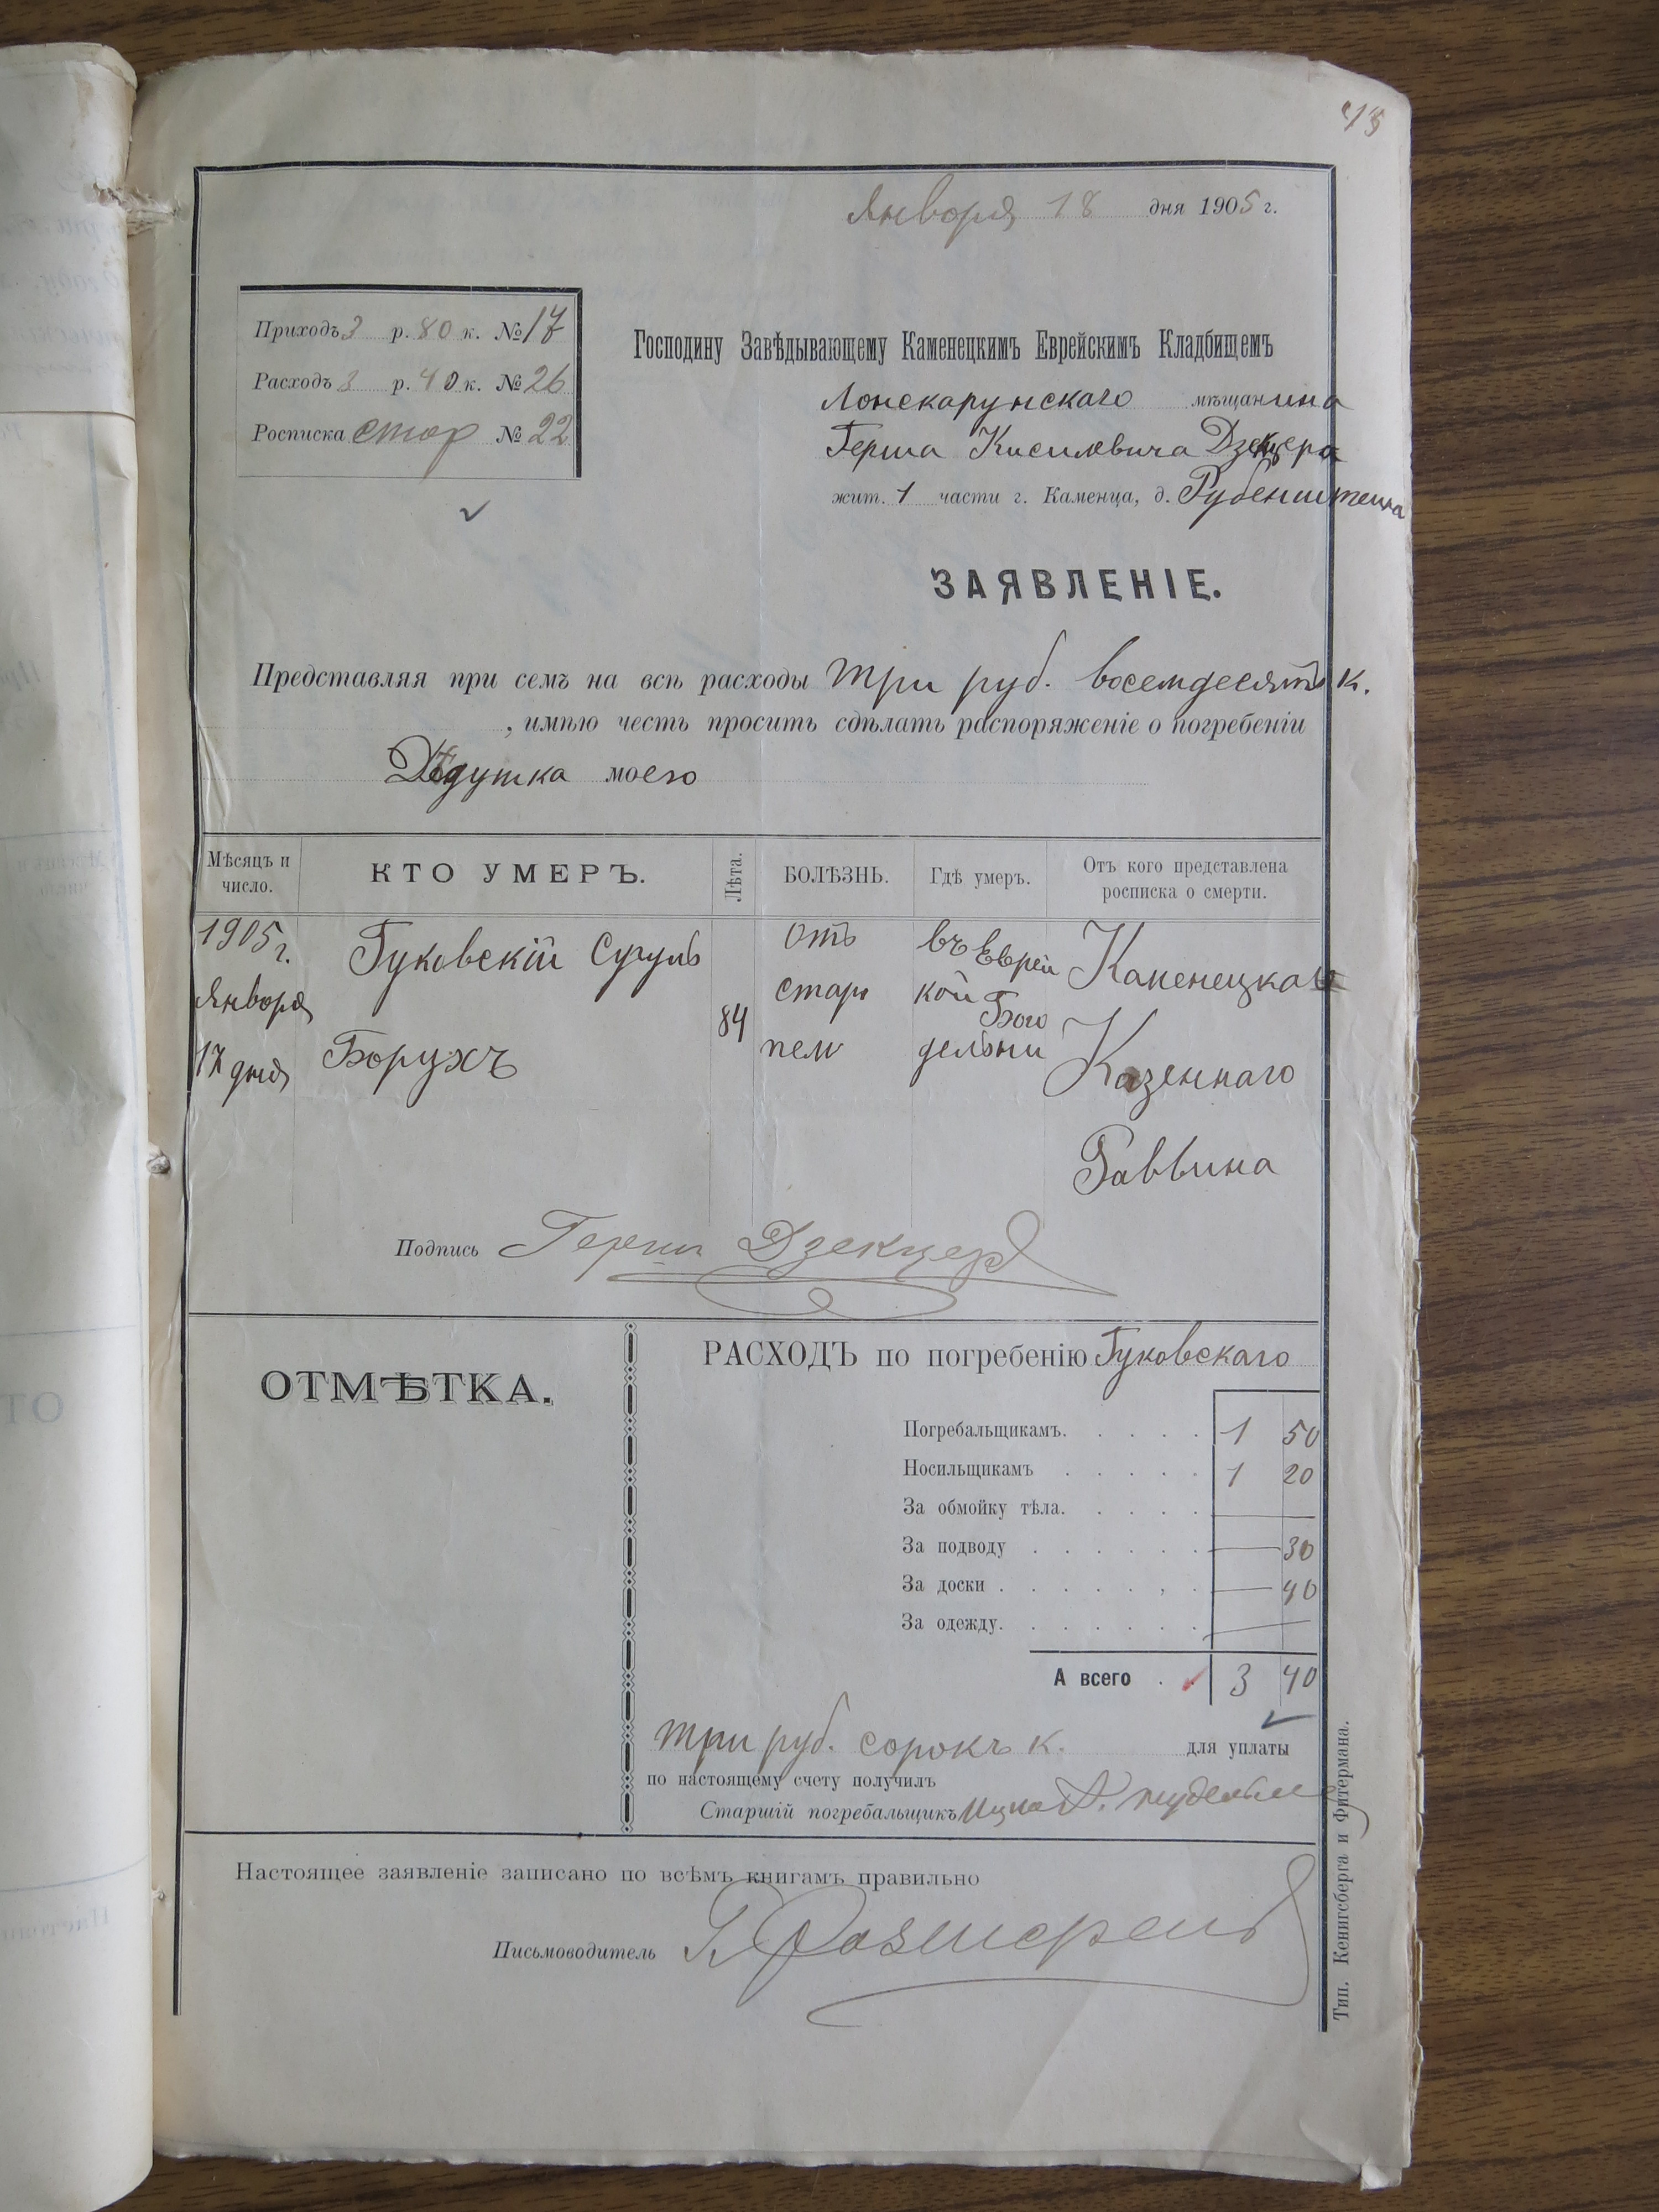 Января 18 дня 1905 г.
Приходъ 3 р. 80 к. № 17
Расходъ 3 р. 40 к. № 26
Росписка стор № 22
Господину Завѣдывающему Каменецкимъ Еврейскимъ Кладбищемъ
Лонскарунскаго мѣщанина
Герша Кисилевича Дзекцера
жит. 1 части г. Каменца, д. Рубенштейна
ЗАЯВЛЕНІЕ.
Представляя при семъ на всѣ расходы три руб. восемдесятъ к.
, имѣю честь просить сдѣлать распоряженіе о погребеніи
Дѣдушка моего
Мѣсяцъ и число. КТО УМЕРЪ. Лѣта. БОЛѢЗНЬ. Гдѣ умеръ. Отъ кого представлена росписка о смерти.
1905 г. Гуковскій отъ въ Еврей Каменецкаго
Января стар кой Бого
17 дня Борухъ 84 дельни Казеннаго
Раввина
Подпись Герш Дзекцеръ
ОТМѢТКА.
РАСХОДЪ по погребенію Гуковскаго
Погребальщикамъ. 1 50
Носильщикамъ 1 20
За обмойку тѣла. —
За подводу — 30
За доски — 40
За одежду. —
А всего 3 40
три руб. сорокъ к. для уплаты
по настоящему счету получилъ
Старшій погребальщикъ
Настоящее заявленіе записано по всѣмъ книгамъ правильно
Письмоводитель
Тип. Кенигсберга и Фитермана.